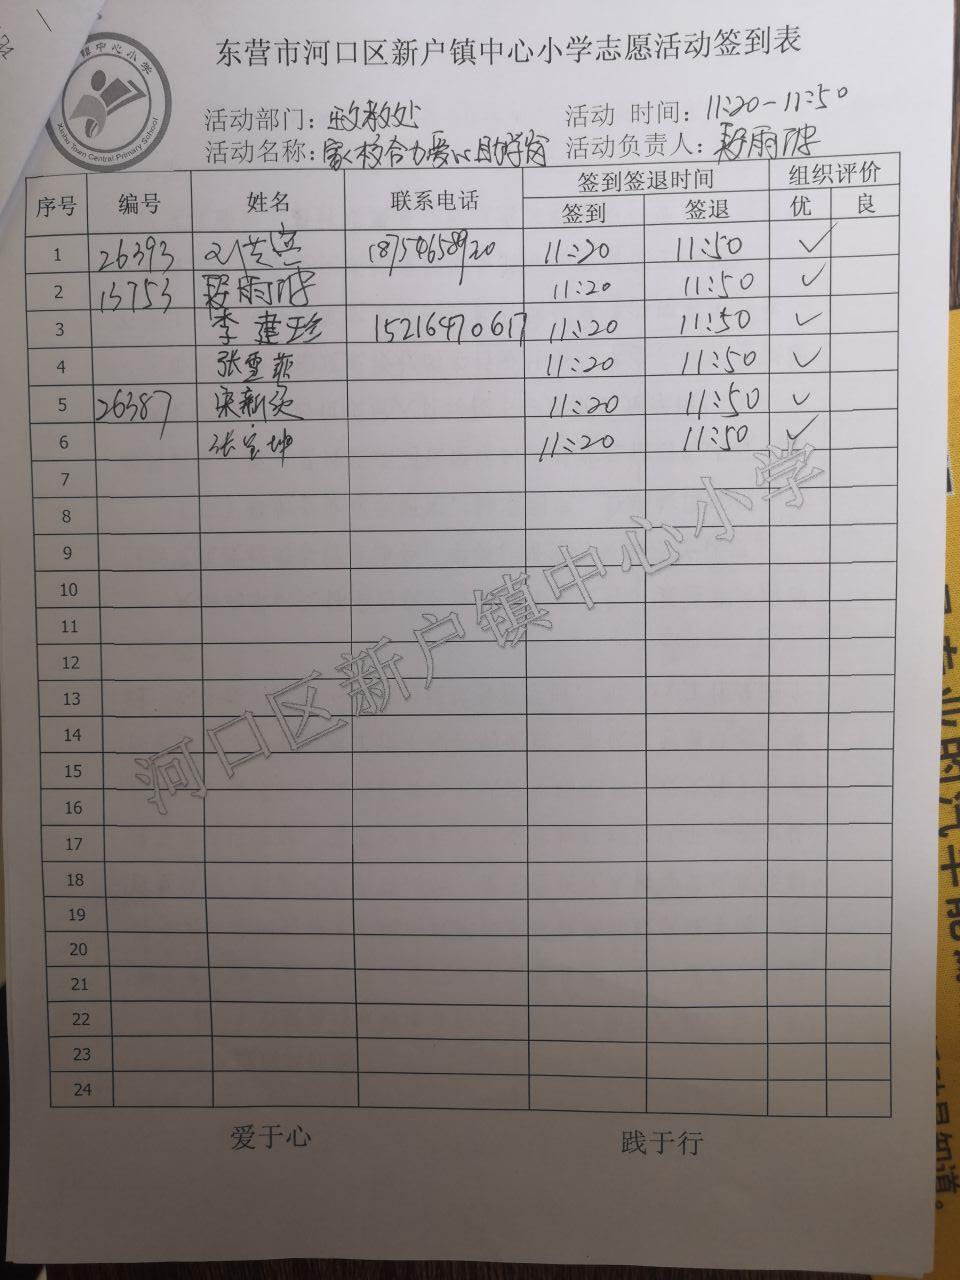 东营市河口区新户镇中心小学志愿活动签到表
Xinhu Town Central Primary School
活动部门：政教处 活动 时间：11:20-11:50
活动名称：家校合力爱心助学岗 活动负责人：
序号 编号 姓名 联系电话 签到签退时间 组织评价
签到 签退 优 良
1 26393 18754658920 11:20 11:50 ✓
2 13753 11:20 11:50 ✓
3 李建珍 15216470617 11:20 11:50 ✓
4 张雪菲 11:20 11:50 ✓
5 26387 11:20 11:50 ✓
6 张宝坤 11:20 11:50 ✓
7
8
9
10
11
12
13
14
15
16
17
18
19
20
21
22
23
24
河口区新户镇中心小学
爱于心 践于行